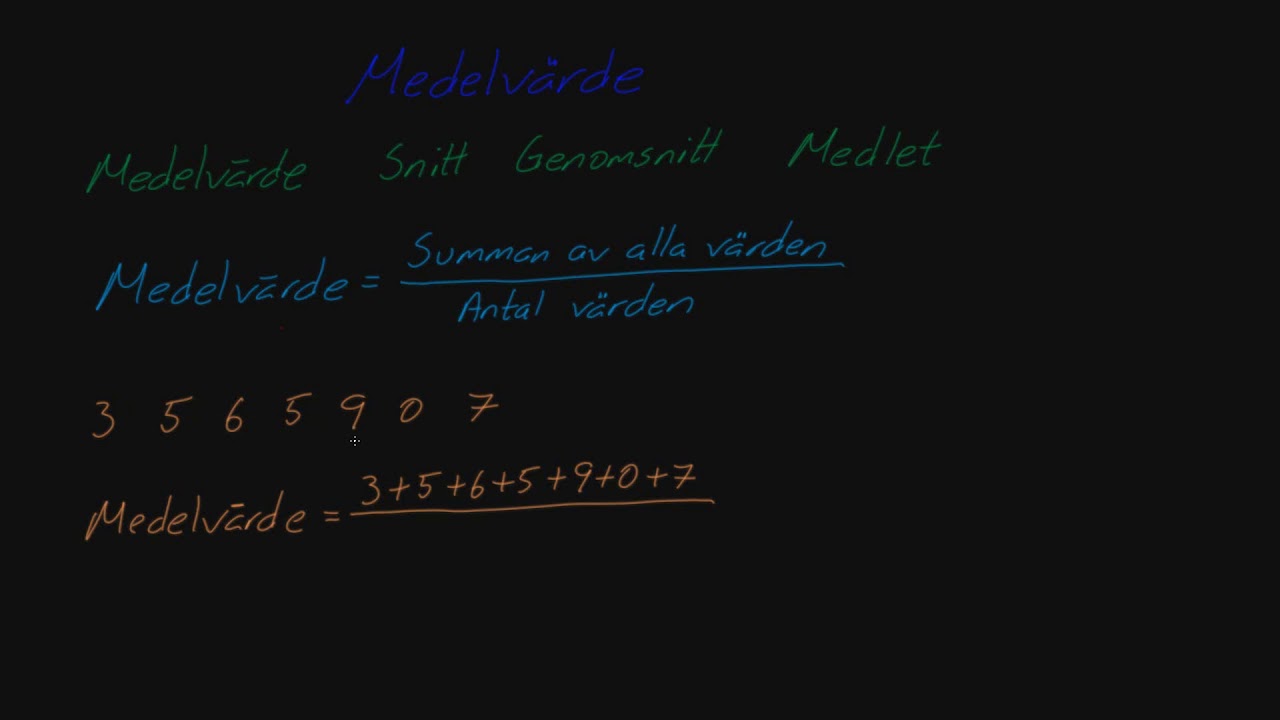 Medelvärde
Medelvärde Snitt Genomsnitt Medlet
Medelvärde = Summan av alla värden
Antal värden
3 5 6 5 9 0 7
Medelvärde = 3+5+6+5+9+0+7